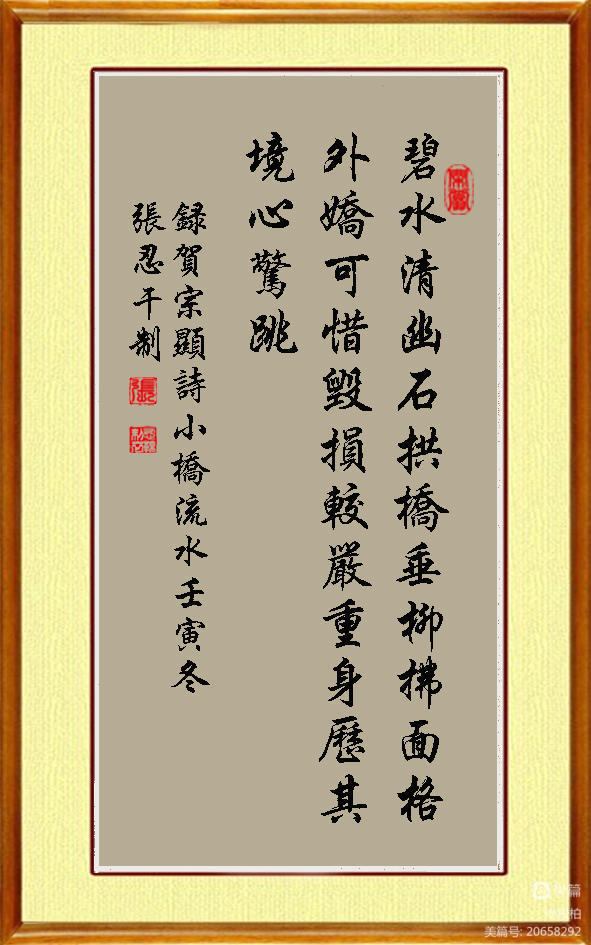 碧水清幽石拱橋垂柳拂面格
外嬌可惜毀損較嚴重身歷其
境心驚跳
録賀宗顯詩小橋流水壬寅冬
張忍干制
張
美篇
柏
美篇号: 20658292